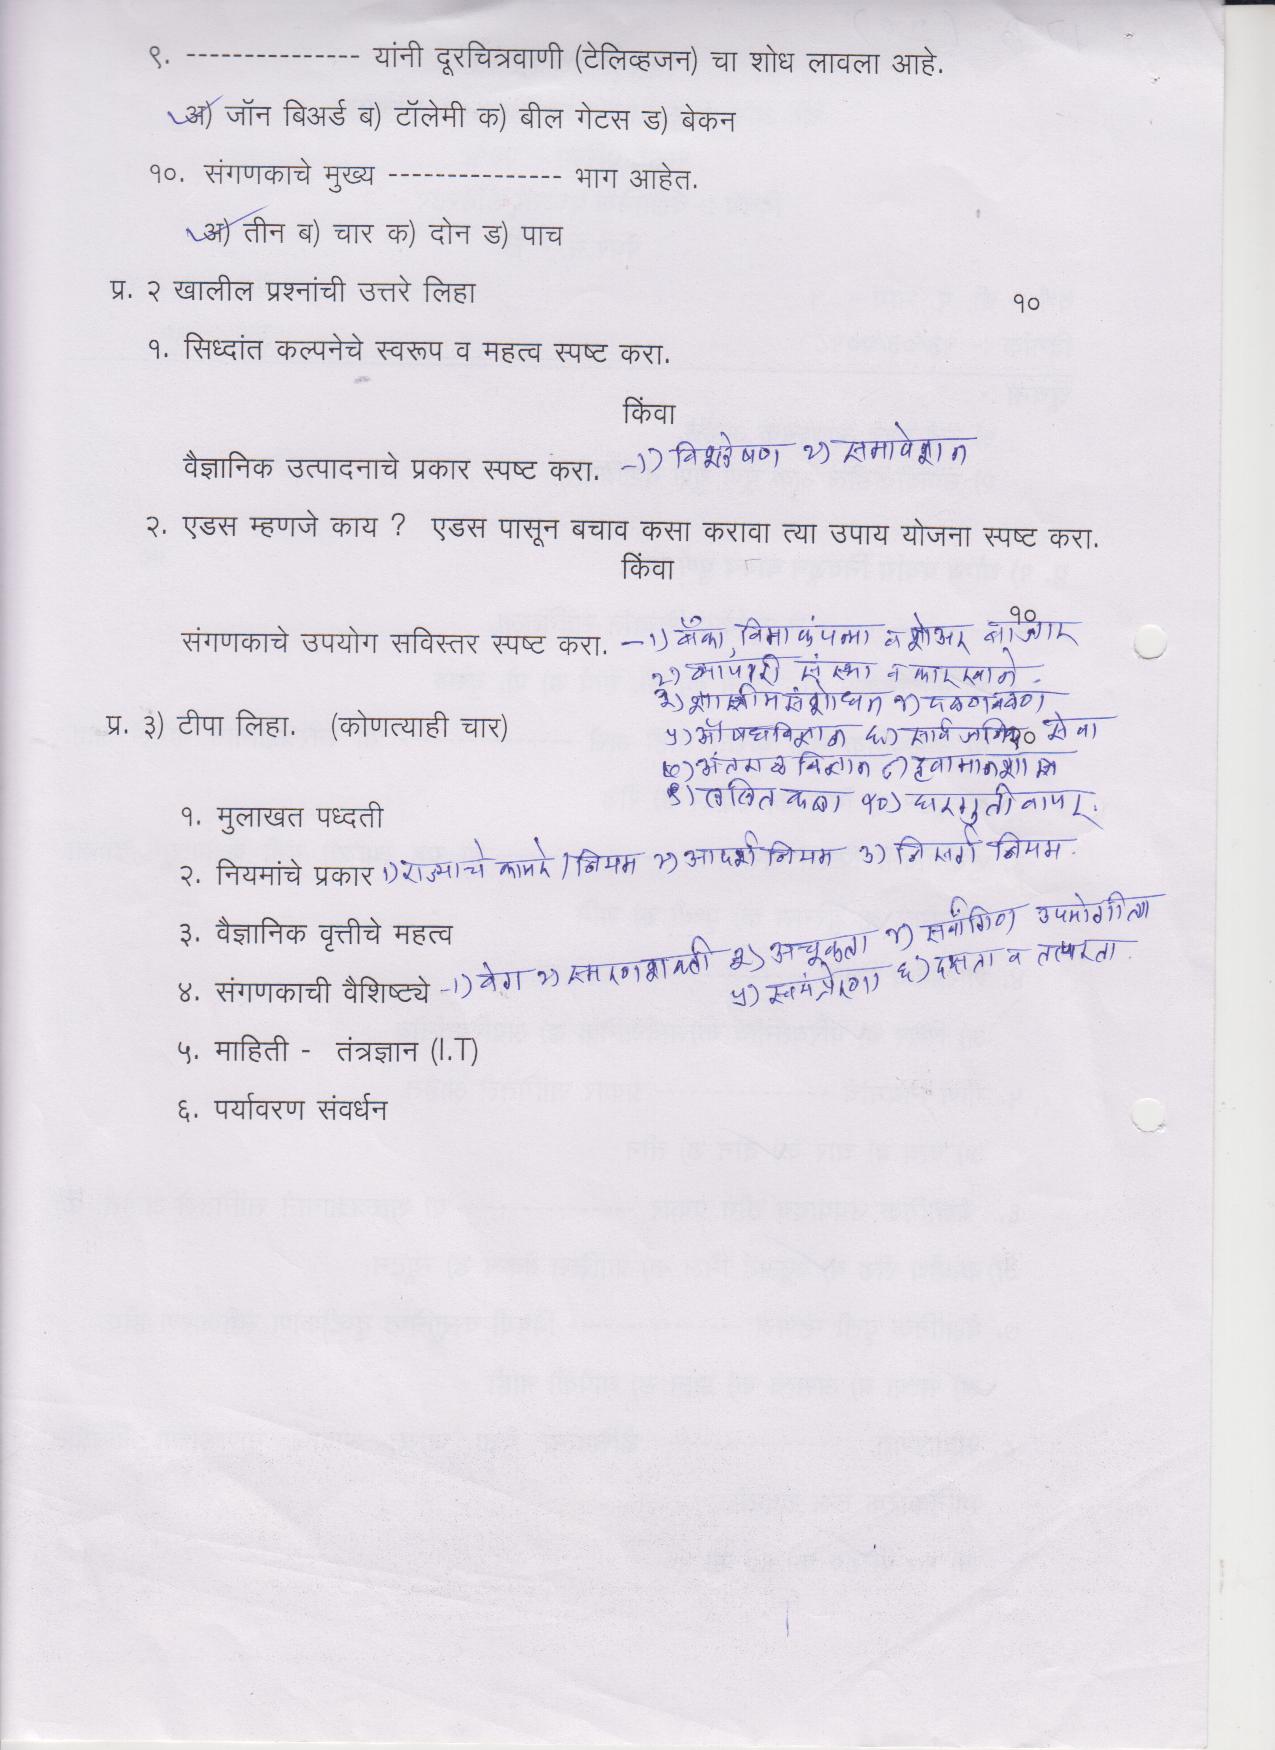 ९. --------------- यांनी दूरचित्रवाणी (टेलिव्हजन) चा शोध लावला आहे.
अ) जॉन बिअर्ड ब) टॉलेमी क) बील गेटस ड) बेकन
१०. संगणकाचे मुख्य --------------- भाग आहेत.
अ) तीन ब) चार क) दोन ड) पाच
प्र. २ खालील प्रश्नांची उत्तरे लिहा १०
१. सिध्दांत कल्पनेचे स्वरूप व महत्व स्पष्ट करा.
किंवा
वैज्ञानिक उत्पादनाचे प्रकार स्पष्ट करा. -१) विश्लेषण २) समावेशन
२. एडस म्हणजे काय ? एडस पासून बचाव कसा करावा त्या उपाय योजना स्पष्ट करा.
किंवा
१०
संगणकाचे उपयोग सविस्तर स्पष्ट करा. -१) बँका, विमा कंपन्या व शेअर बाजार
२) व्यापारी संस्था व कारखाने.
३) शास्त्रीय संशोधन ४) दळणवळण
प्र. ३) टीपा लिहा. (कोणत्याही चार) २०
५) औषधविज्ञान ६) सार्वजनिक सेवा
७) अंतराळ विज्ञान ८) हवामानशास्त्र
९) ललित कला १०) घरगुती वापर.
१. मुलाखत पध्दती
२. नियमांचे प्रकार १) राज्याचे कायदे / नियम २) आदर्श नियम ३) निसर्ग नियम.
३. वैज्ञानिक वृत्तीचे महत्व
४. संगणकाची वैशिष्ट्ये -१) वेग २) स्मरणशक्ती ३) अचूकता ४) सर्वांगिण उपयोगीता
५) स्वयंप्रेरणा ६) दक्षता व तत्परता.
५. माहिती - तंत्रज्ञान (I.T)
६. पर्यावरण संवर्धन